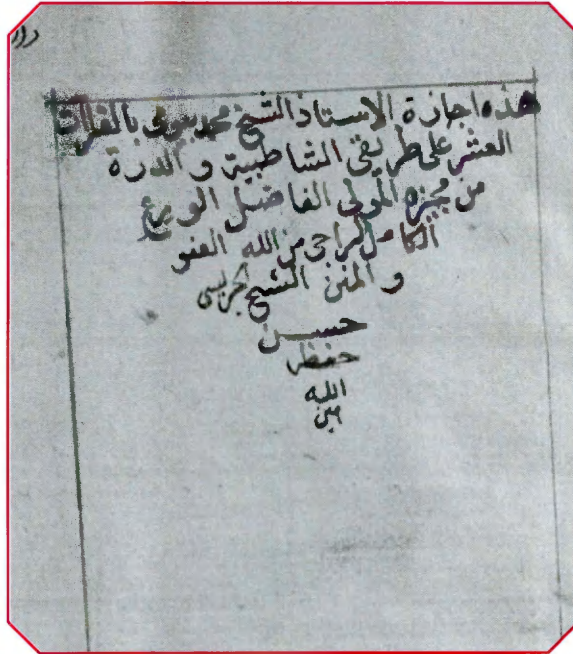 هذه اجازة الاستاذ الشيخ محمد بيومى بالقراات
العشر على طريقى الشاطبية والدرة
من مجيزه المولى الفاضل الورع
الكامل الراجى من الله العفو
والمنن الشيخ الجريسى
حسن
حفظه
الله